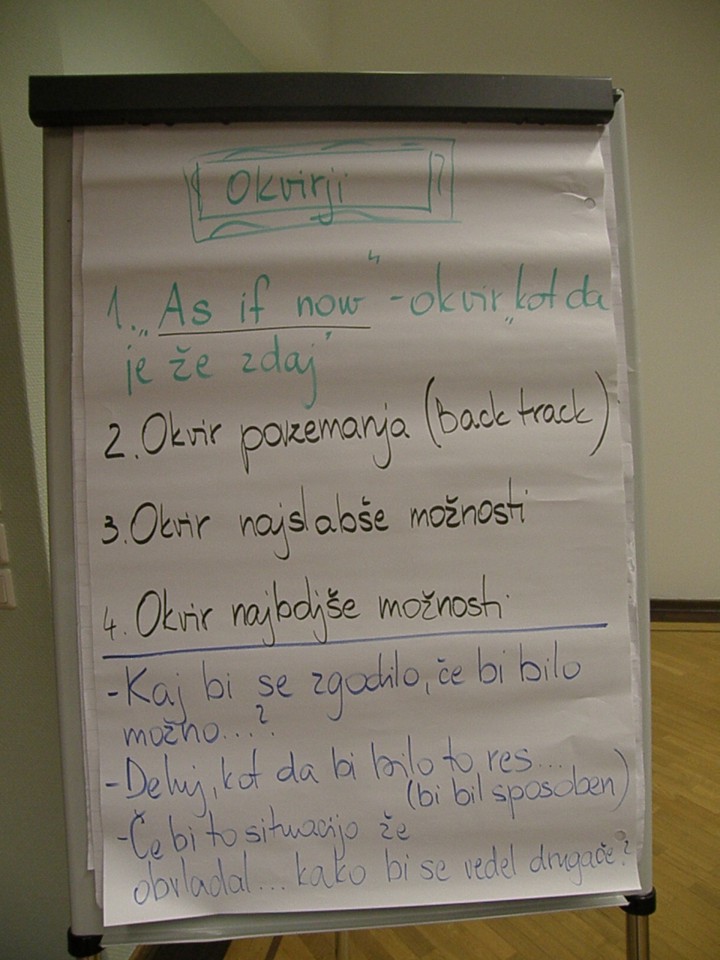 Okvirji
1. „As if now“ - okvir „kot da
je že zdaj'
2. Okvir povzemanja (Back track)
3. Okvir najslabše možnosti
4. Okvir najboljše možnosti
- Kaj bi se zgodilo, če bi bilo
možno...?
- Deluj, kot da bi bilo to res...
(bi bil sposoben)
- Če bi to situacijo že
obvladal... kako bi se vedel drugače?